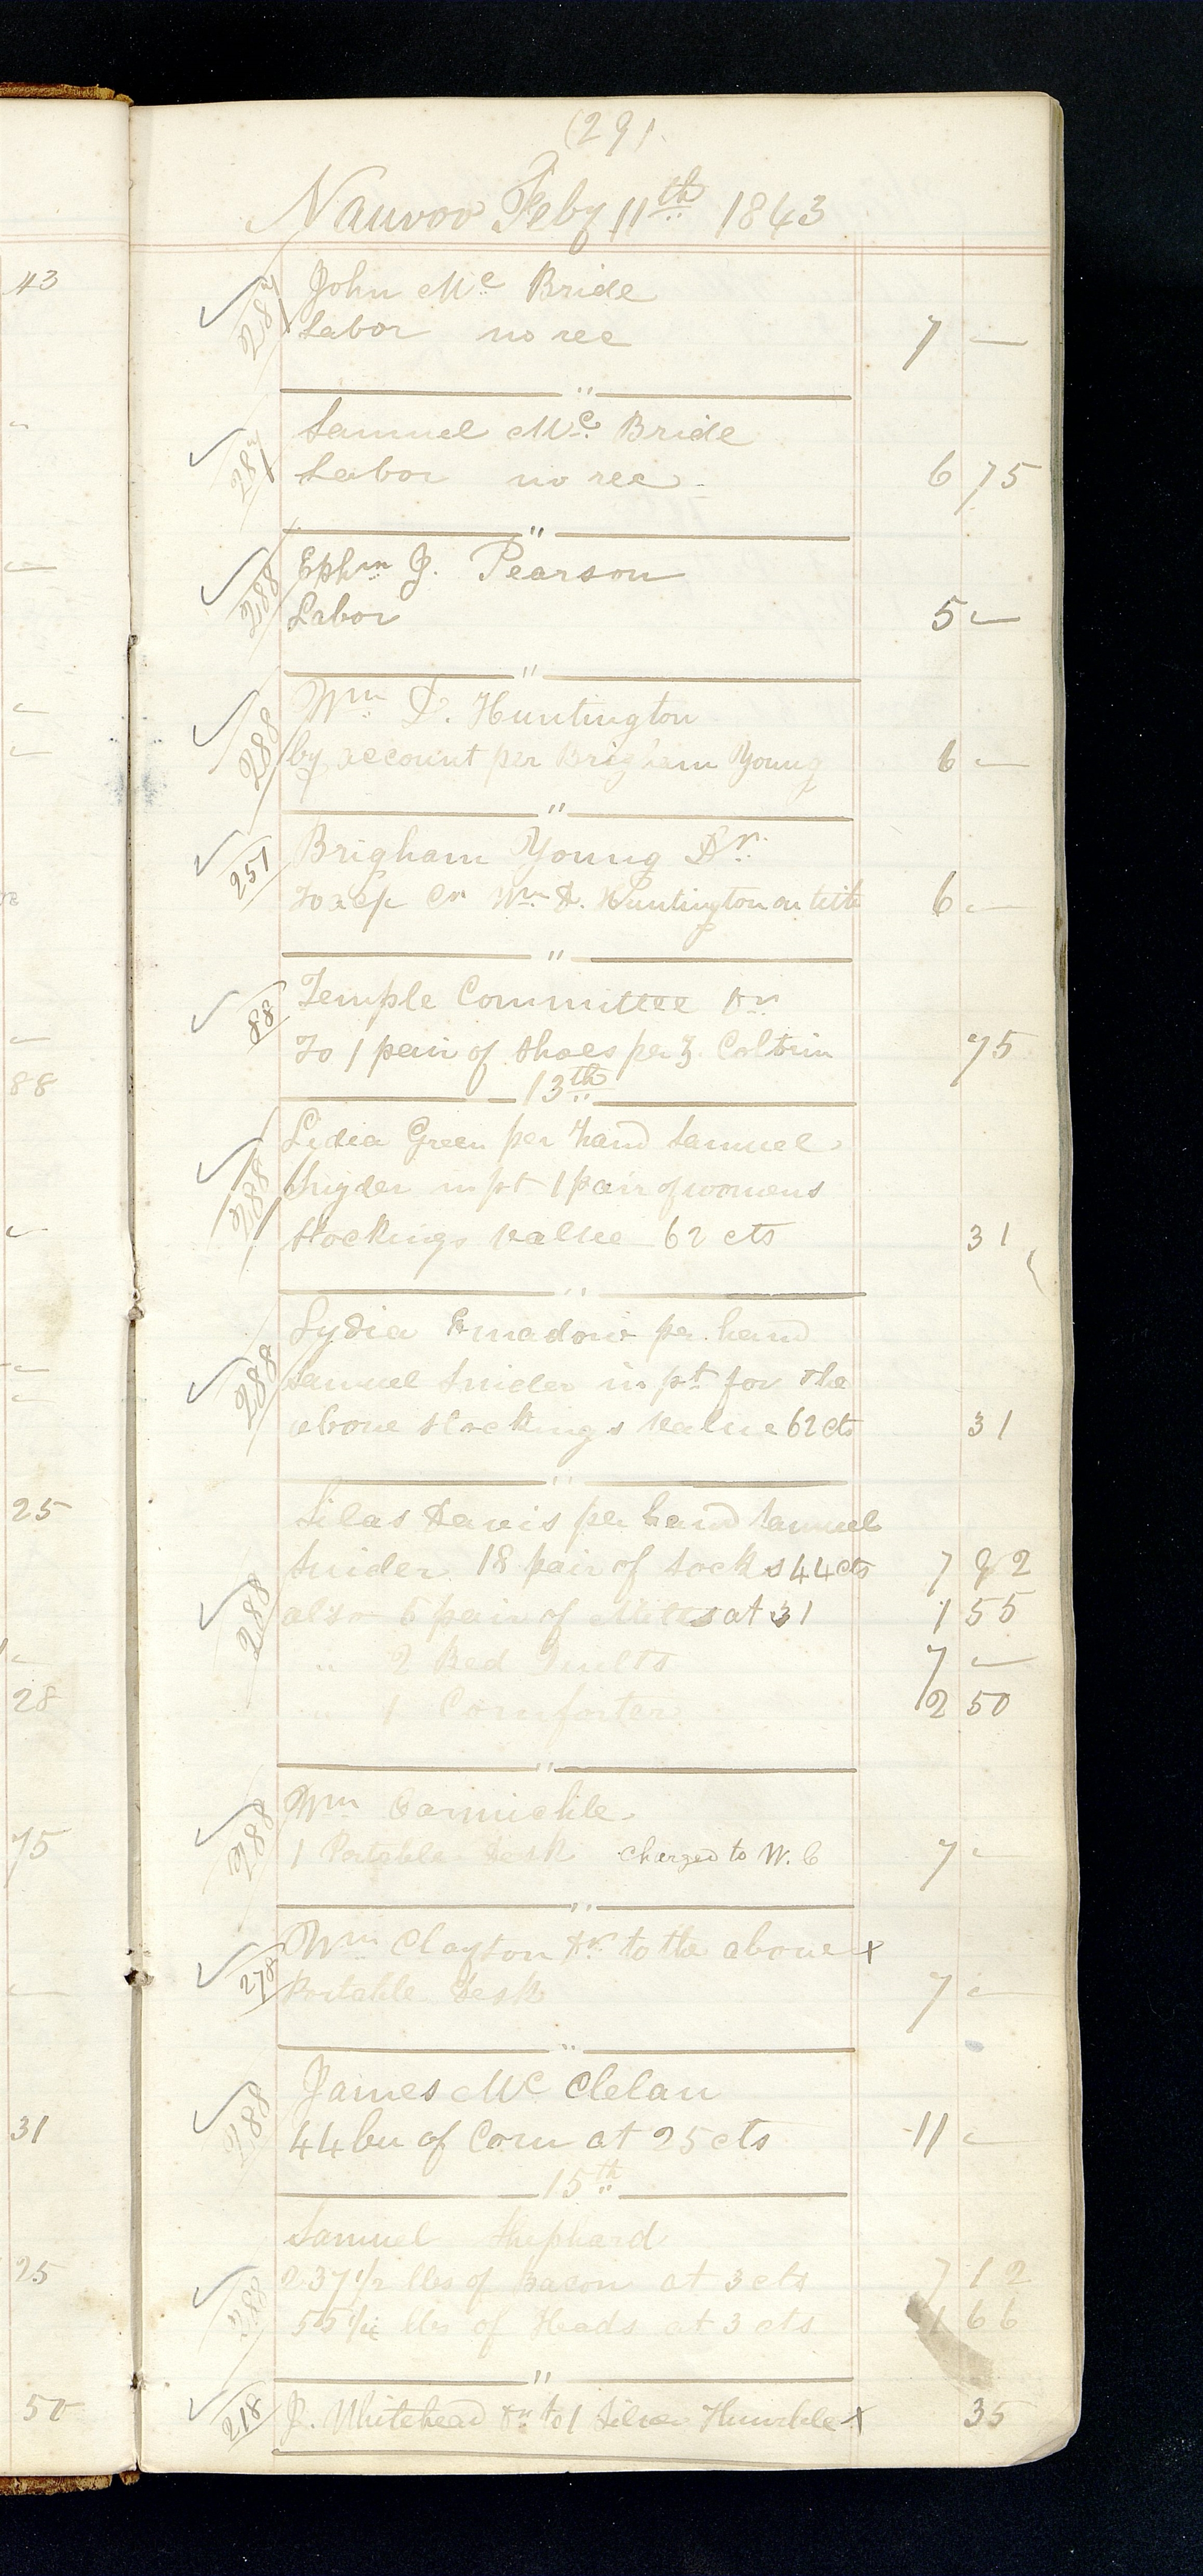 (29)
Nauvoo Feby 11th 1843
43
287 John Mc Bride
Labor no rec 7 —
287 Samuel Mc. Bride
Labor no rec. 6 75
288 Ephm J. Pearson
Labor 5 —
288 Wm D. Huntington
by account per Brigham Young 6 —
251 Brigham Young Dr.
To Cr Wm D. Huntington on tith 6 —
88 Temple Committee Dr
To 1 pair of Shoes per Z. Coltrin 75
88
13th
288 Lidia Green per hand Samuel
Snyder in pt 1 pair of womens
Stockings value 62 cts 31
288 Lydia per hand
Samuel Snider in pt for the
above stockings value 62 cts 31
25
Silas Davis per hand Samuel
288 Snider 18 pair of Socks 44 cts 7 92
also 5 pair of Mitts at 31 1 55
" 2 Bed Quilts 7 —
28
" 1 Comforter 2 50
288 Wm Carmichle
75
1 Portable Desk charged to W. C 7 —
278 Wm Clayton Dr to the above x
Portable Desk 7 —
288 James Mc Clelan
31
44 bu of Corn at 25 cts 11 —
15th
Samuel Shephard
25
288 237 1/2 lbs of Bacon at 3 cts 7 12
55 1/4 lbs of Heads at 3 cts 1 66
50
218 J. Whitehead Dr to 1 Silver Thimble x 35